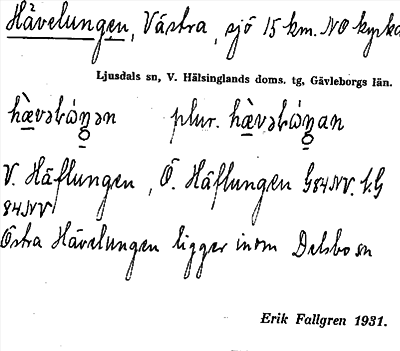 Hävelungen, Västra, sjö 15 km. NO kyrka
Ljusdals sn, V. Hälsinglands doms. tg, Gävleborgs län.
plur.
V. Häflungen, Ö. Häflungen G84NV. &G
84NV
Östra Hävelungen ligger inom Delsbo sn
Erik Fallgren 1931.